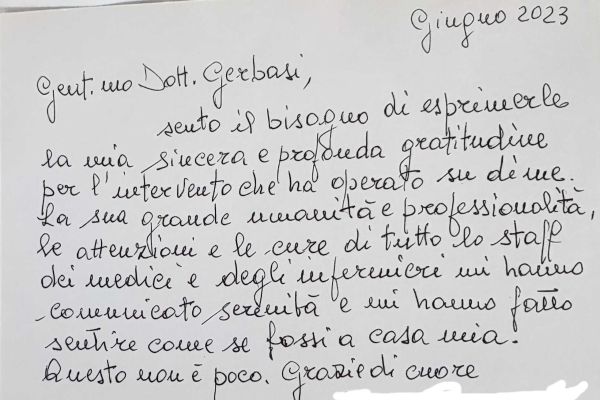 Giugno 2023
Gent.mo Dott. Gerbasi,
sento il bisogno di esprimerle
la mia sincera e profonda gratitudine
per l'intervento che ha operato su di me.
La sua grande umanità e professionalità,
le attenzioni e le cure di tutto lo staff
dei medici e degli infermieri mi hanno
comunicato serenità e mi hanno fatto
sentire come se fossi a casa mia.
Questo non è poco. Grazie di cuore